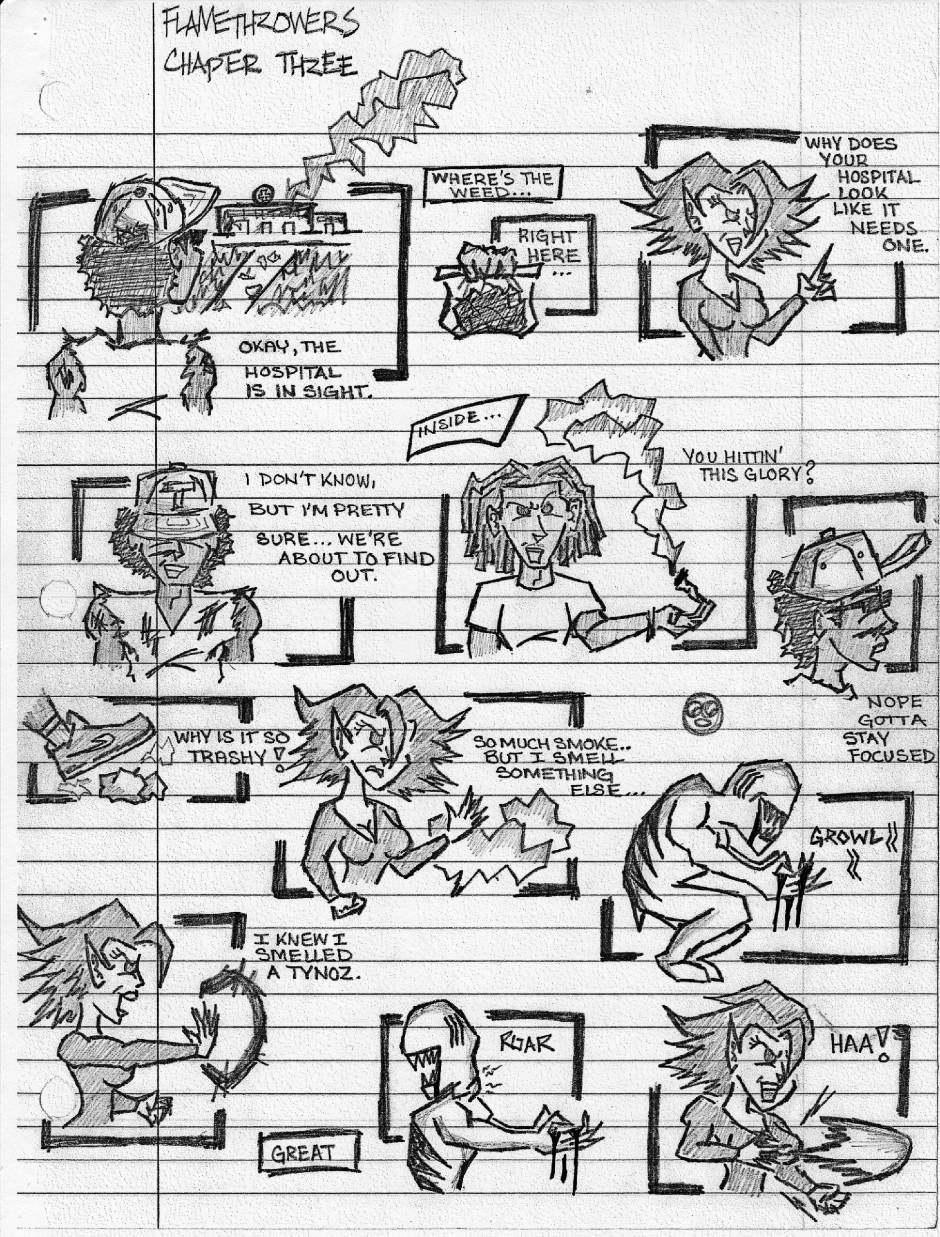 FLAMETHROWERS
CHAPTER THREE
OKAY, THE
HOSPITAL
IS IN SIGHT.
WHERE'S THE
WEED...
RIGHT
HERE
...
WHY DOES
YOUR
HOSPITAL
LOOK
LIKE IT
NEEDS
ONE.
I DON'T KNOW,
BUT I'M PRETTY
SURE... WE'RE
ABOUT TO FIND
OUT.
INSIDE...
YOU HITTIN'
THIS GLORY?
NOPE
GOTTA
STAY
FOCUSED
WHY IS IT SO
TRASHY!
SO MUCH SMOKE..
BUT I SMELL
SOMETHING
ELSE...
GROWL
I KNEW I
SMELLED
A TYNOZ.
GREAT
ROAR
HAA!